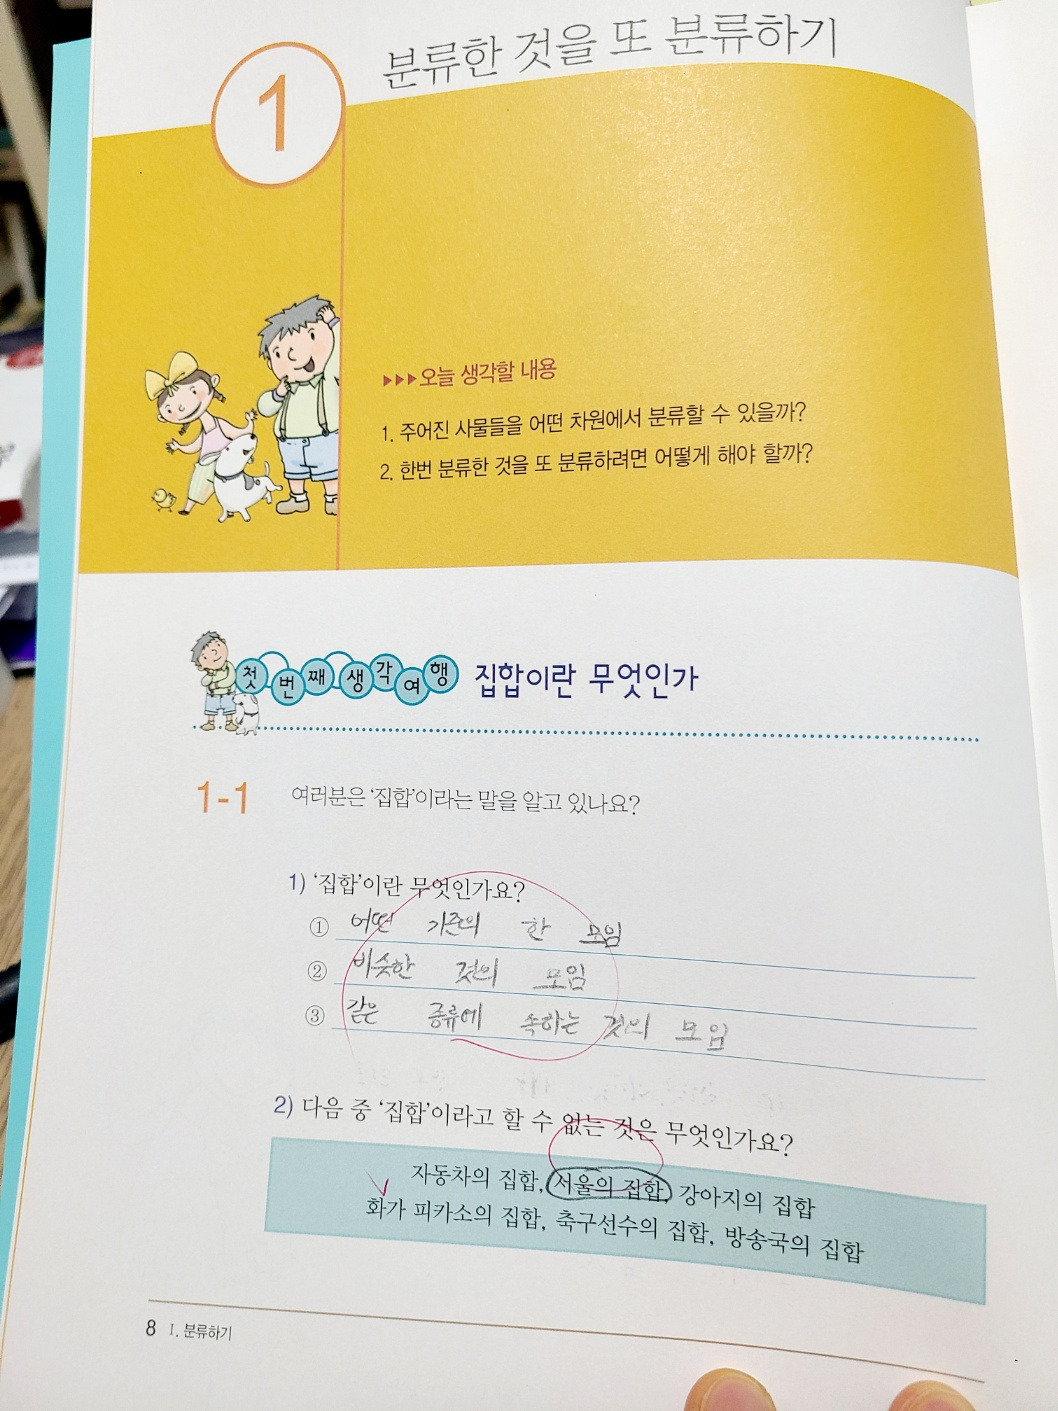 1
분류한 것을 또 분류하기
▶▶▶오늘 생각할 내용
1. 주어진 사물들을 어떤 차원에서 분류할 수 있을까?
2. 한번 분류한 것을 또 분류하려면 어떻게 해야 할까?
첫번째생각여행 집합이란 무엇인가
1-1 여러분은 ‘집합’이라는 말을 알고 있나요?
1) ‘집합’이란 무엇인가요?
① 어떤 기준의 한 모임
② 비슷한 것의 모임
③ 같은 종류에 속하는 것의 모임
2) 다음 중 ‘집합’이라고 할 수 없는 것은 무엇인가요?
자동차의 집합, 서울의 집합, 강아지의 집합
화가 피카소의 집합, 축구선수의 집합, 방송국의 집합
8 1. 분류하기